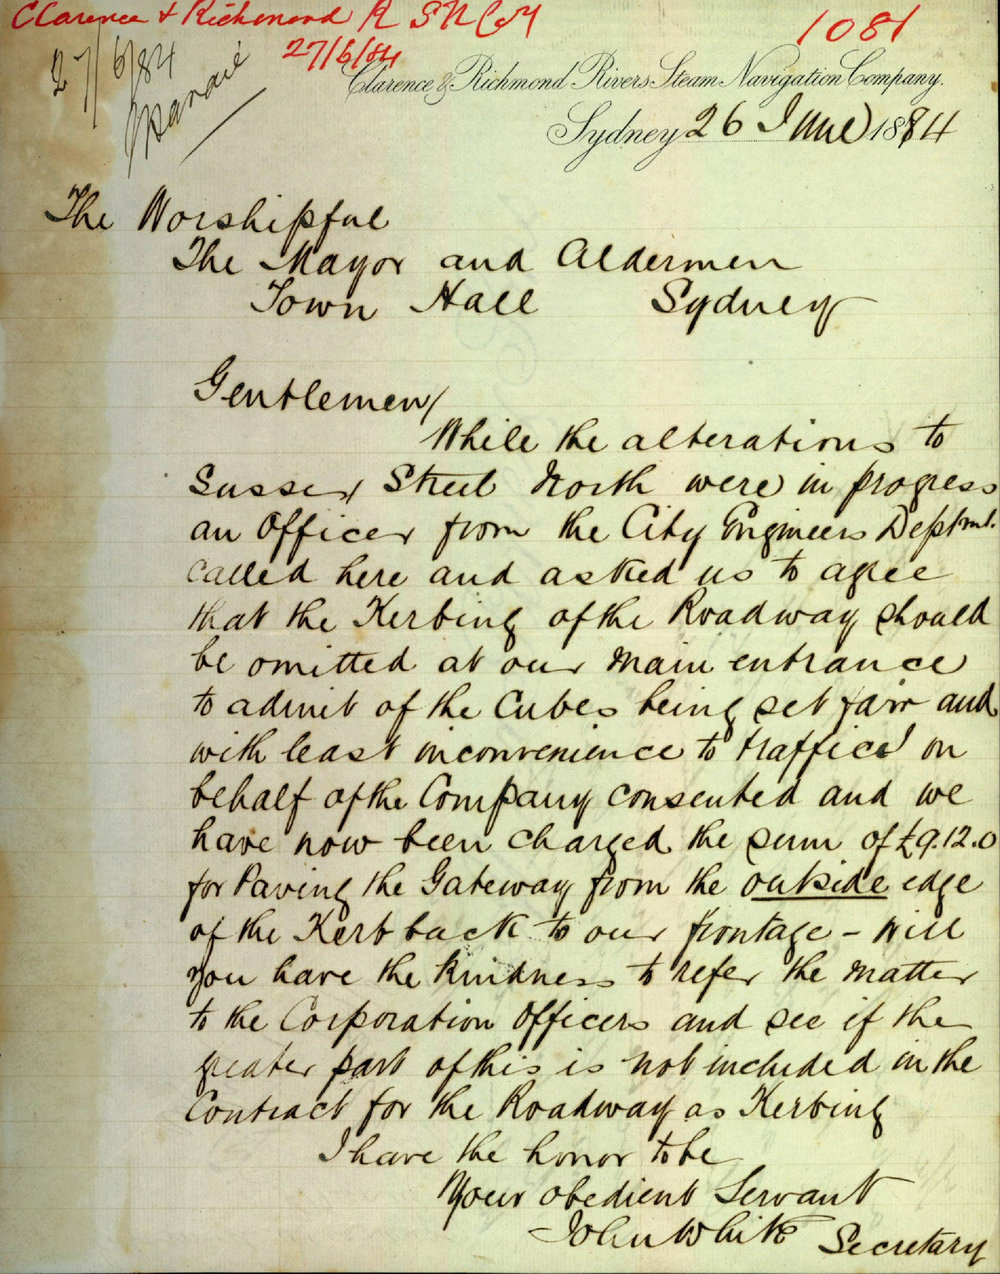 Clarence & Richmond R S N Coy
1081
27/6/84
27/6/84
Clarence & Richmond Rivers Steam Navigation Company.
Sydney 26 June 1884
The Worshipful
The Mayor and Aldermen
Town Hall Sydney
Gentlemen/
While the alterations to
Sussex Street North were in progress
an Officer from the City Engineers Deptmt.
called here and asked us to agree
that the Kerbing of the Roadway should
be omitted at our main entrance
to admit of the Cubes being set fair and
with least inconvenience to traffice on
behalf of the Company consented and we
have now been charged the sum of £9.12.0
for Paving the Gateway from the outside edge
of the Kerb back to our frontage - Will
you have the kindness to refer the matter
to the Corporation Officers and see if the
greater part of this is not included in the
Contract for the Roadway as Kerbing
I have the honor to be
Your obedient Servant
John White Secretary